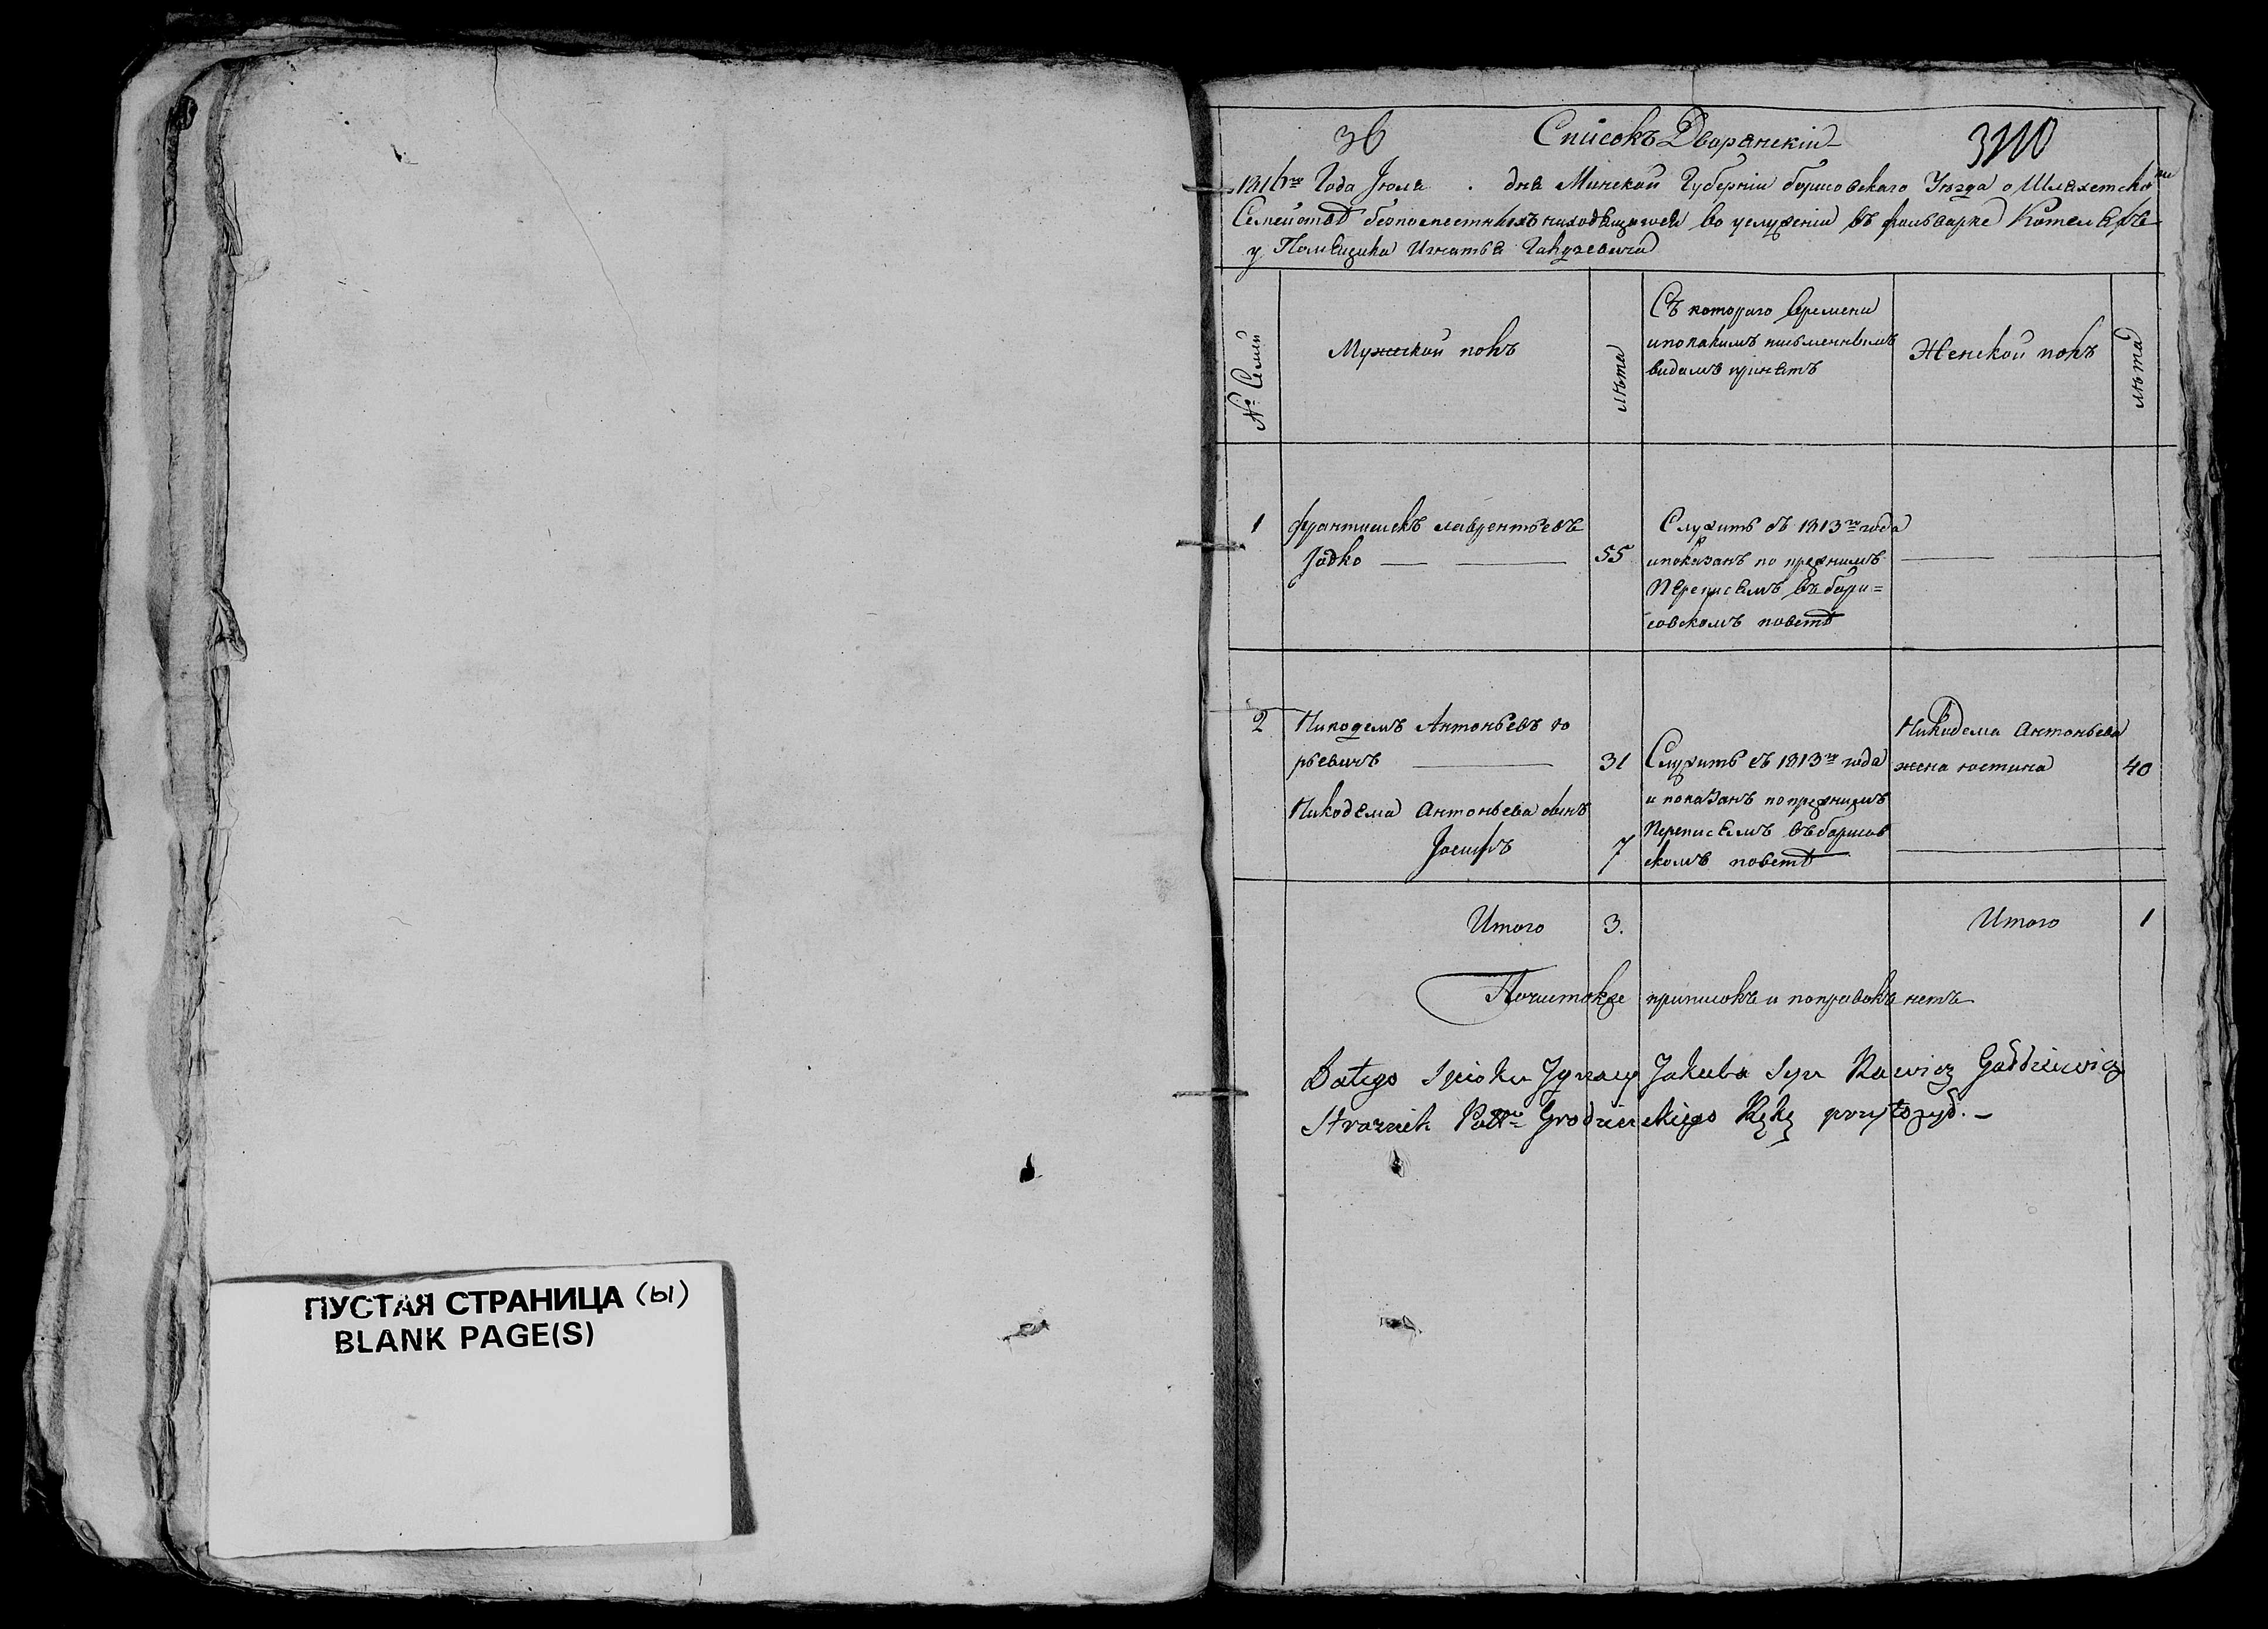 ПУСТАЯ СТРАНИЦА (ы)
BLANK PAGE(S)
36 Списокъ Дворянскій
1816го Года Июля . дня Минской Губерніи борисовскаго Уѣзда о Шляхетско
Семействѣ безпоместныхъ находящагося во услуженіи въ фольварке
у Помѣщика Игнатья Гавдзевича
№ Семьи
Мужской полъ
лѣта
Съ котораго времени
и по какимъ письменнымъ
видамъ принятъ
Женской полъ
лѣта
1 франтишекъ лаврентьевъ
Јодко 55
Служитъ съ 1813го года
и показанъ по прежнимъ
переписямъ въ бори=
совскомъ поветѣ
2 Никодемъ Антоньевъ ю
рьевичъ 31
Никодема Антоньева сынъ
Јосифъ 7
Служитъ съ 1813го года
и показанъ по прежнимъ
переписямъ въ борисов
скомъ поветѣ
Никодема Антоньева
жена юстина 40
Итого 3.
Итого 1
Почистокъ приписокъ и поправокъ нетъ
Do tego Spisku Jgnacy Jakuba Syn Rawicz Gaŭdziewicz
Straznik Grodzienskiego Rękę przyłożył. –